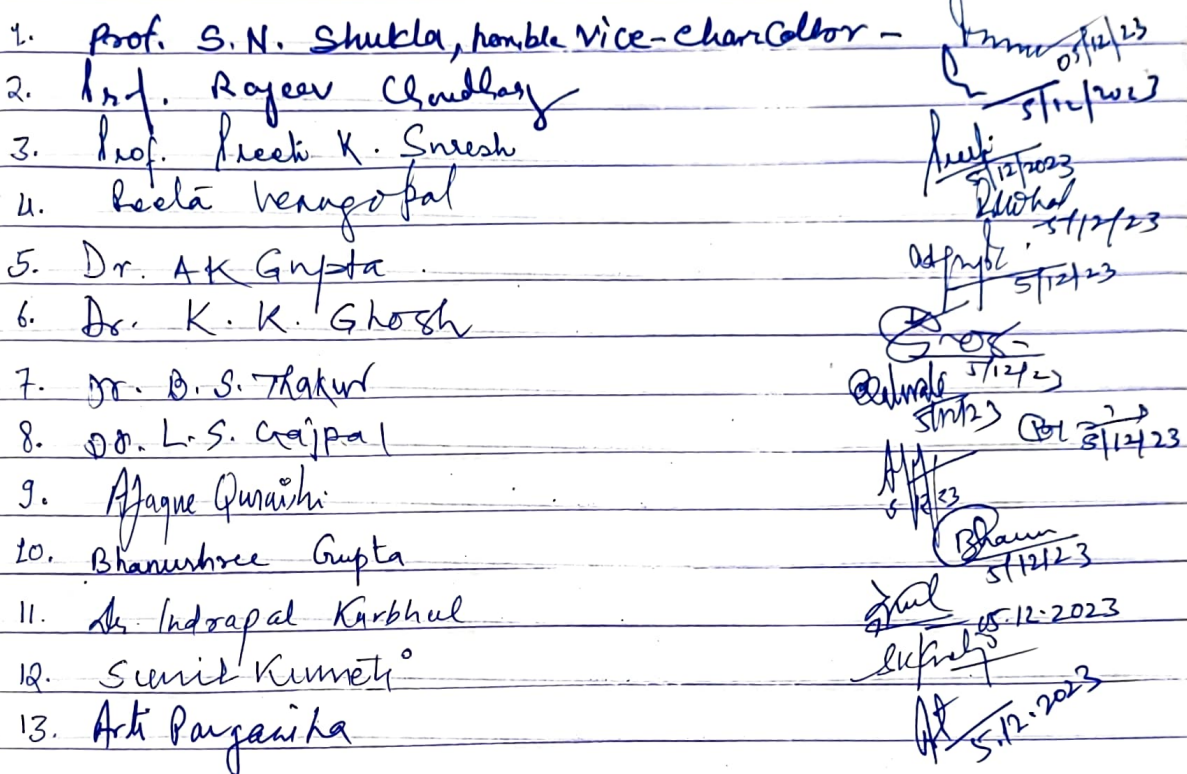 1. Prof. S. N. Shukla, honible Vice-chancellor - 05/12/23
2. Prof. Rajeev Choudhary 5/12/2023
3. Prof. Preeti K. Suresh 5/12/2023
4. Reeta Venugopal 5/12/23
5. Dr. AK Gupta. 5/12/23
6. Dr. K. K. Ghosh 5/12/23
7. Dr. B. S. Thakur 5/12/23
8. Dr. L. S. Gajpal 5/12/23
9. Afaque Quraishi 5/12/23
10. Bhanushree Gupta 5/12/23
11. Dr Indrapal Karbhal 05.12.2023
12. Sunil Kumeti
13. Arti Parganiha 5.12.2023